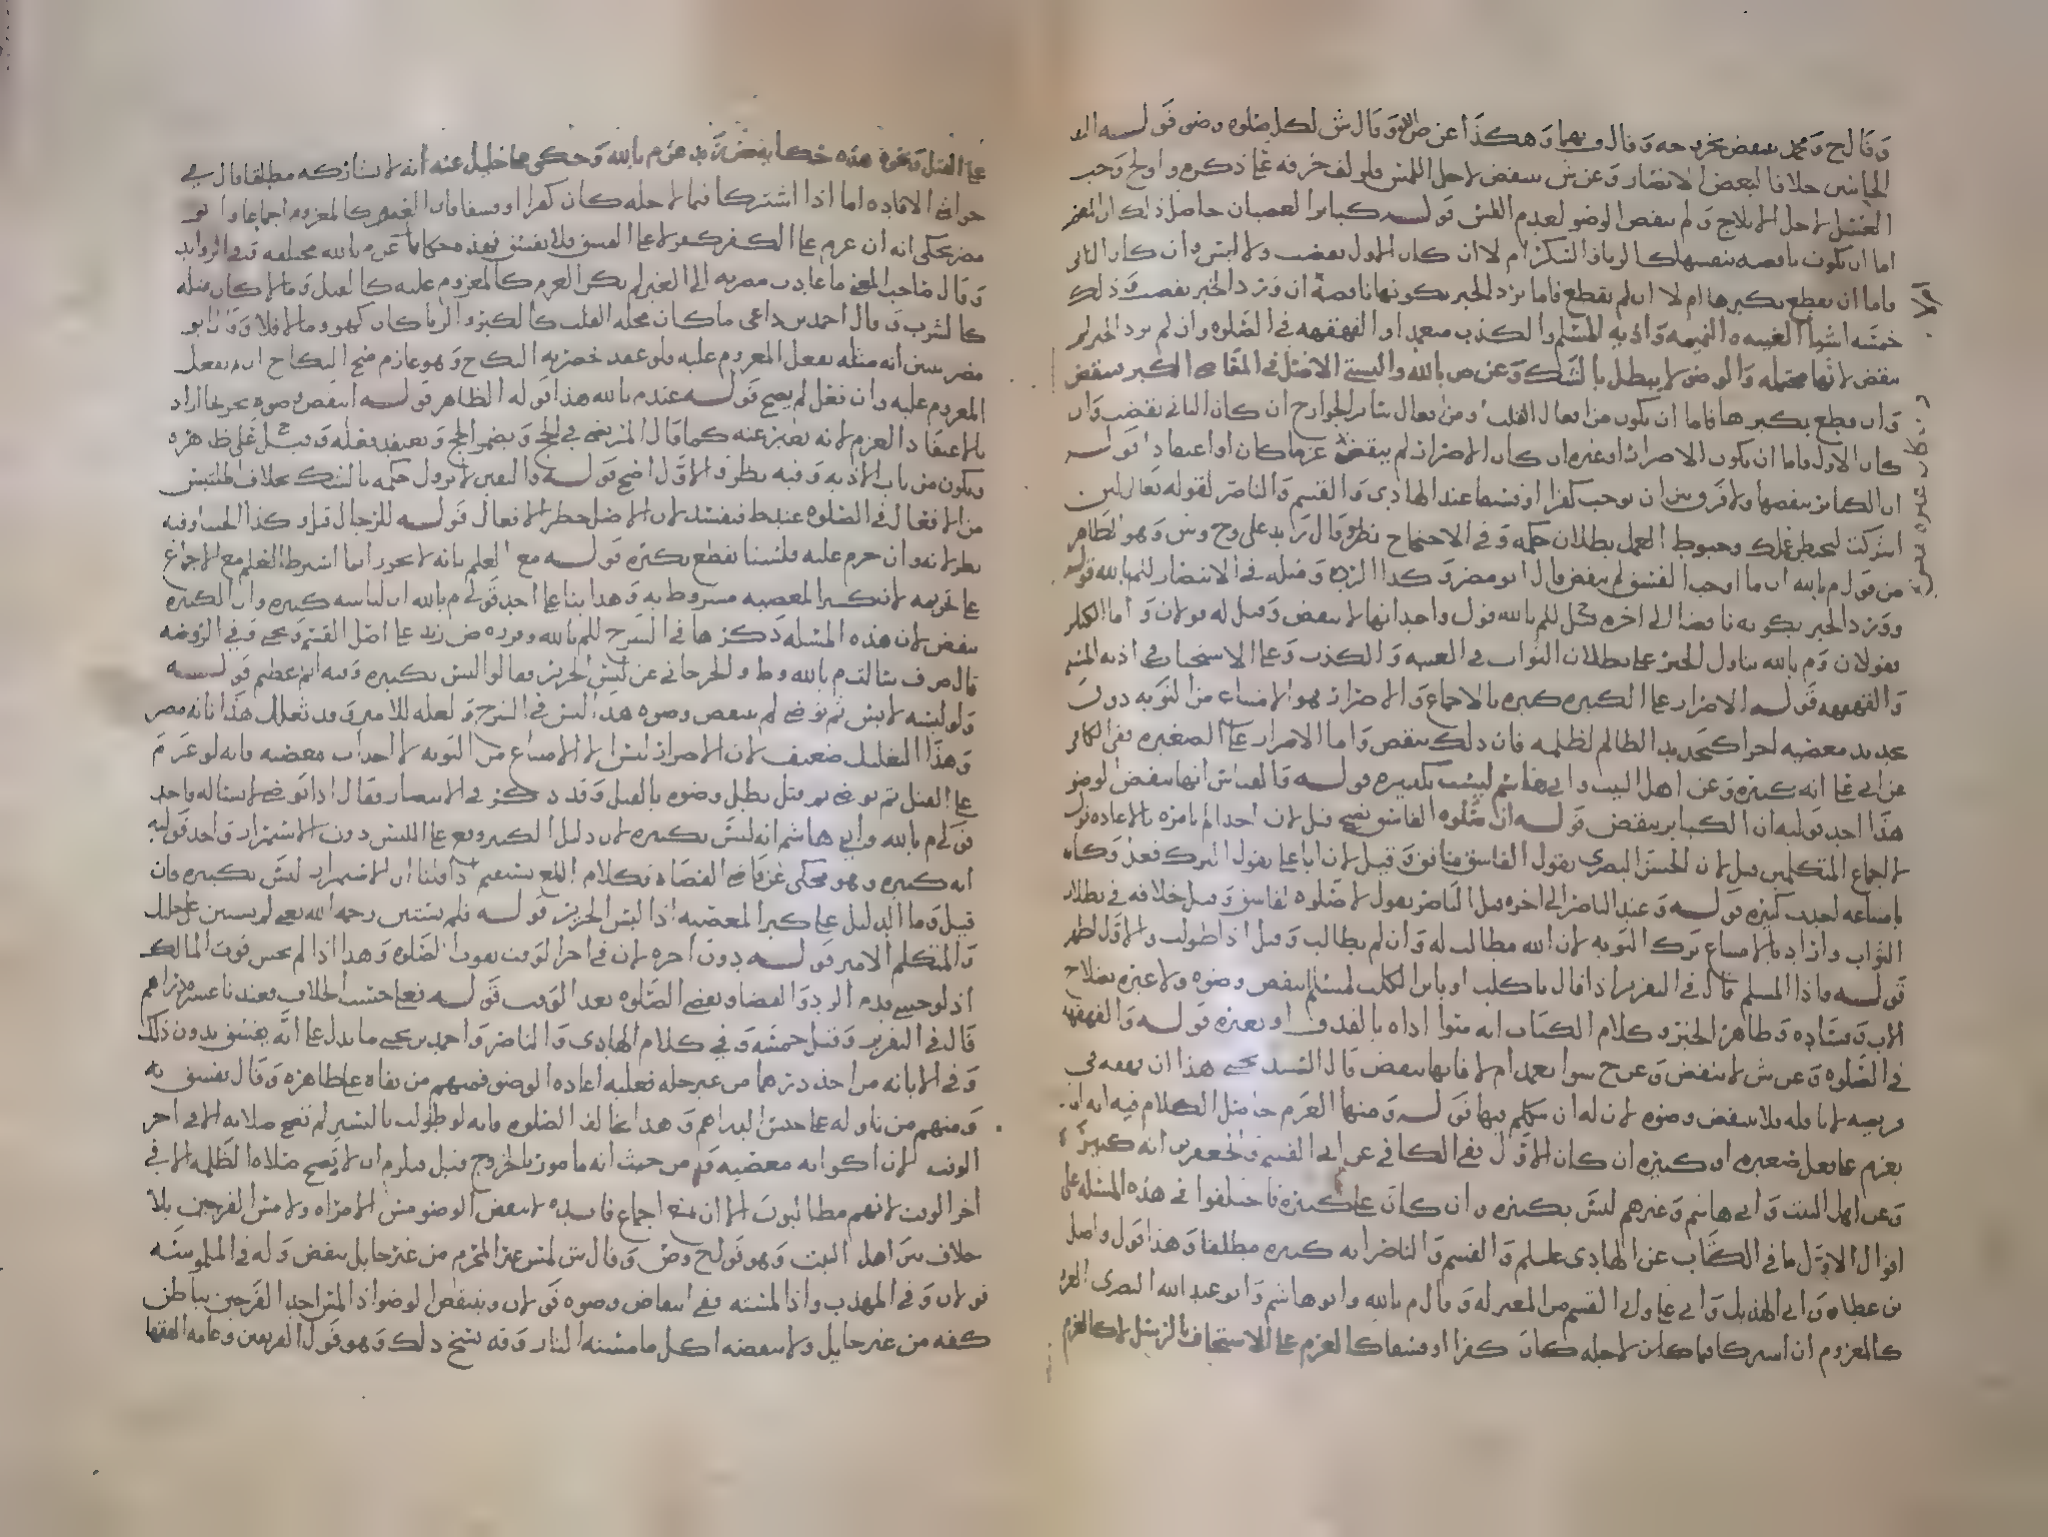 وقال ح ومحمد ينقض بخروجه وقال وبهما وهكذا عن ض بالله وقال ش لكل صلوه وضو قوله
الجاش خلافا لبعض الانصار وعن ش ينقض لاجل اللمس فلو لف خرقه فما ذكروه واولج وجب
الغسل لاجل الايلاج ولم ينقض الوضو لعدم اللمس قوله كبائر العصيان حاصل ذلك ان
اما ان يكون ناقضه بنفسها كالزنا والسكر ام لا ان كان الاول نقضت ولا لبس وان كان الثاني
فاما ان يقطع بكبرها ام لا ان لم يقطع فاما يرد الخبر بكونها ناقضة ان ورد الخبر نقضت وذلك
خمسه اشيا الغيبه والنميمه واذيه المسلم والكذب متعمدا والقهقهه في الصلوه وان لم يرد الخبر لم
ينقض لانها محتمله والوضو لا يبطل بالشك وعن ص بالله والبستي الاصل في المعاصي الكبر فينقض
وان قطع بكبرها فاما ان يكون من افعال القلب او من افعال سائر الجوارح ان كان الثاني نقضت وان
كان الاول فاما ان يكون الاصرار او غيره ان كان الاصرار لم ينقض عزما كان او اعتقادا قوله
ان الكبائر ينقضها ولا فرق بين ان يوجب كفرا او فسقا عند الهادي والقسم والناصر لقوله تعالى لئن
اشركت ليحبطن عملك وحبوط العمل بطلان حكمه وفي الاحتجاج نظر وقال زيد بن علي وح وش وهو الظاهر
من قول م بالله ان ما اوجب الفسق لم ينقض قال ابو مضر وكذا الرده ومثله في الانتصار للم بالله قوله
وورد الخبر بكونه ناقضا الى اخره حصل للم بالله قول واحد انها لا تنقض وقيل له قولان واما الكبائر
فقولان وم بالله يتاول الخبر على بطلان الثواب في الغيبه والكذب وعلى الاستحباب في اذيه المسلم
والقهقهه قوله الاصرار على الكبيره كبيره بالاجماع والاصرار هو الامتناع من التوبه دون
تجديد معصيه اخرا كتجديد الظالم لظلمه فان ذلك ينقض واما الاصرار على الصغيره ففي الكافي
عن ابي علي انه كبيره وعن اهل البيت وابي هاشم ليست بكبيره قوله والقياس انها تنقض الوضو
هذا احد قوليه ان الكبائر تنقض قوله ان صلوه الفاسق تصح قيل لان احدا لم يامره بالاعاده قول
لاجماع المتكلمين قيل لان الحسن البصري يقول الفاسق منافق وقيل لان ابا علي يقول الترك فعل وكان
بامتناعه احدث كبيره قوله وعند الناصر الى اخره قيل الناصر يقول لا صلوه لفاسق وقيل خلافه في بطلان
الثواب واراد بالامتناع ترك التوبه لان الله مطالب له وان لم يطالب وقيل اذا طولب والاول اظهر
قوله واذا المسلم قال في التقرير اذا قال يا كلب او يا بن الكلب لمسلم انتقض وضوه ولا عبره بصلاح
الاب وفساده وظاهر الخبر وكلام الكتاب انه سوا اذاه بالقذف او بغيره قوله والقهقهه
في الصلوه وعن ش لا تنقض وعن ح سوا تعمد ام لا فانها تنقض قال السيد يحي هذا ان قهقه في
فريضه لا نافله فلا ينتقض وضوه لان له ان يتكلم فيها قوله ومنها العزم حاصل الكلام فيه انه ان
يعزم على فعل صغيره او كبيره ان كان الاول ففي الكافي عن ابي القسم والجعفرين انه كبيره
وعن اهل البيت وابي هاشم وغيرهم ليس بكبيره وان كان على كبيره فاختلفوا في هذه المسئله على
اقوال الاول ما في الكتاب عن الهادي عليلم والقسم والناصر انه كبيره مطلقا وهذا قول واصل
بن عطاه وابي الهذيل وابي علي وابي القسم من المعتزله وقال م بالله وابو هاشم وابو عبد الله البصري العزم
كالمعزوم ان اشتركا فيما كان لاجله كان كفرا او فسقا كالعزم على الاستخفاف بالرسل لا كالعزم
على القتل ونحوه هذه حكايه ض زيد عن م بالله وحكى علي خليل عنه انه لا يشاركه مطلقا قال في
حواشي الافاده اما اذا اشتركا فيما لاجله كان كفرا او فسقا فان العزم كالمعزوم اجماعا وابو
مضر يحكي انه ان عزم على الكفر كفر لا على الفسق فلا يفسق فهذه حكايات عن م بالله مختلفه وفي الزوايد
وقال صاحب المغني ما عادت مضرته الى الغير لم يكن العزم كالمعزوم عليه كالقتل وما لا كان مثله
كالشرب وقال احمد بن داعي ما كان محله القلب كالكبر والريا كان كهو وما لا فلا وقال ابو
مضر يتبين انه مثله بفعل المعزوم عليه فلو عقد بحضرته النكاح وهو عازم صح النكاح ان لم يفعل
المعزوم عليه وان فعل لم يصح قوله عند م بالله هذا قوله الظاهر قوله انتقض وضوه
بالاعتقاد العزم لانه يعبر عنه كما قال المزيني في الحج ويضمر الحج ويعتقد بفعله وقيل على ظاهره
ويكون من باب الاذيه وفيه نظر والاول اصح قوله واليقين لا يزول حكمه بالشك بخلاف الملتبس
من الافعال في الصلوه عند ط فيفسد لان الاصل حظر الافعال قوله للرجال قيل وكذا الخنثا وفيه
نظر لانه وان حرم عليه فلسنا نقطع بكبره قوله مع العلم بانه لا يجوز انما اشترط العلم مع الاجماع
على تحريمه لان كبر المعصيه مشروط به وهذا بنا على احد قولي م بالله ان لباسه كبيره وان الكبيره
تنقض لان هذه المسئله ذكرها في الشرح للم بالله وقرره ض زيد على اصل القسم ويحي وفي الروضه
قال صرف سالت م بالله وط والجرجاني عن لبس الحرير فقالوا ليس بكبيره وفيه اثم عظيم قوله
ولو لبسه لابس ثم توضى لم ينتقض وضوه هذا ليس في الشرح ولعله للامير وقد تعلل هذا بانه مصر
وهذا التعليل ضعيف لان الاصرار ليس الا الامتناع من التوبه لا احداث معصيه فانه لو عزم
على القتل ثم توضى ثم قتل بطل وضوه بالقتل وقد ذكر في الانتصار وقال اذا توضى لابسا له فاحد
قولي م بالله وابي هاشم انه ليس بكبيره لان دليل الكبر وقع على اللبس دون الاستمرار واحد قوليه
انه كبيره وهو محكي عن قاضي القضاه وكلام اللمع يستقيم اذا قلنا ان الاستمرار ليس بكبيره فان
قيل وما الدليل على كبر المعصيه اذا لبس الحرير قوله فلم يتبين رحمه الله يعني لم يتبين علي خليل
والمتكلم الامير قوله دون اخره لان في اخر الوقت يفوت الصلوه وهذا اذا لم يخش فوت المال
اذ لو خشيه قدم الرد والقضا ويقضي الصلوه بعد الوقت قوله فعلى حسب الخلاف فعندنا عشره دراهم
قال في التقرير وقيل خمسه وفي كلام الهادي والناصر واحمد بن يحي ما يدل على انه يفسق بدون ذلك
وفي الابانه من اخذ درهما من غير حله فعليه اعاده الوضو فمنهم من بقاه على ظاهره وقال يفسق به
ومنهم من تاوله على جنس الدراهم وهذا يخالف الصلوه فانه لو طولب باليسير لم تصح صلاته الا في اخر
الوقت لان اكوانه معصيه من حيث انه مامور بالخروج قيل فيلزم ان لا يصح صلاه الظلمه الا في
اخر الوقت لانهم مطالبون الا ان يقع اجماع فايده لا ينقض الوضو مس المراه ولا مس الفرجين بلا
خلاف بين اهل البيت وهو قول ح وص وقال ش لمس غير المحرم من غير حايل ينقض وله في الملموسه
قولان وفي المهذب واذا المسته ففي انتقاض وضوه قولان وينتقض الوضو اذا لمس احد الفرجين بباطن
كفه من غير حايل ولا ينقضه اكل ما مسته النار وقد نسخ ذلك وهو قول الفريقين وعامه الفقها